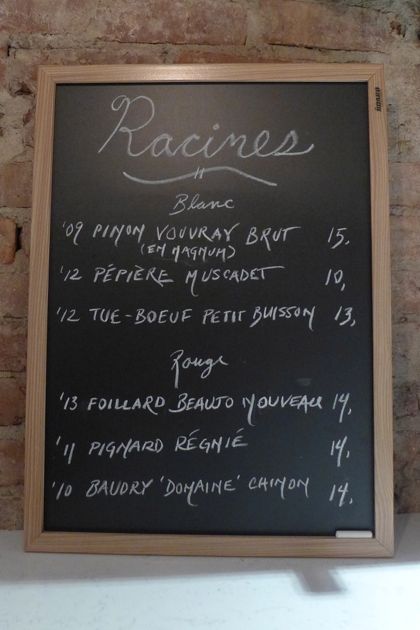 Racines
Blanc
'09 PINON VOUVRAY BRUT 15,
(EN MAGNUM)
'12 PÉPIÈRE MUSCADET 10,
'12 TUE-BOEUF PETIT BUISSON 13,
Rouge
'13 FOILLARD BEAUJO NOUVEAU 14,
'11 PIGNARD RÉGNIÉ 14,
'10 BAUDRY 'DOMAINE' CHINON 14,